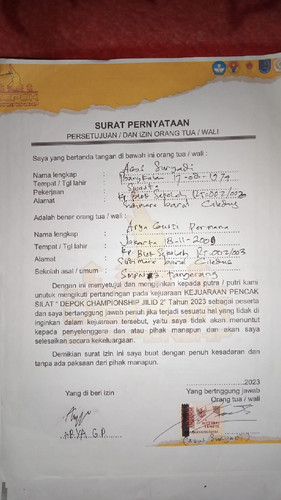 SURAT PERNYATAAN
PERSETUJUAN / DAN IZIN ORANG TUA / WALI
Saya yang bertanda tangan di bawah ini orang tua / wali :
Nama lengkap : Agus Suryadi
Tempat / Tgl lahir : 17-08-1974
Pekerjaan : Swasta
Alamat : Kp Blok Sekolah Rt 002/003
Sudimara Barat Ciledug
Adalah bener orang tua / wali :
Nama lengkap : Arya Gusti Permana
Tempat / Tgl lahir : Jakarta 18-11-2001
Alamat : Kp Blok Sekolah Rt 002/003
Sudimara Barat Ciledug
Sekolah asal / umum : Tangerang
Dengan ini menyetujui dan mengijinkan kepada putra / putri kami
untuk mengikuti pertandingan pada kejuaraan KEJUARAAN PENCAK
SILAT " DEPOK CHAMPIONSHIP JILID 2" Tahun 2023 sebagai peserta
dan saya bertanggung jawab penuh jika terjadi sesuatu hal yang tidak di
inginkan dalam kejuaraan tersebut, yaitu saya tidak akan menuntut
kepada penyelenggara dan atau pihak manapun dan akan saya
selesaikan secara kekeluargaan.
Demikian surat izin ini saya buat dengan penuh kesadaran dan
tanpa ada paksaan dari pihak manapun.
....................2023
Yang di beri izin
Yang bertinggung jawab
Orang tua / wali
ARYA G.P
(Agus Suryadi)